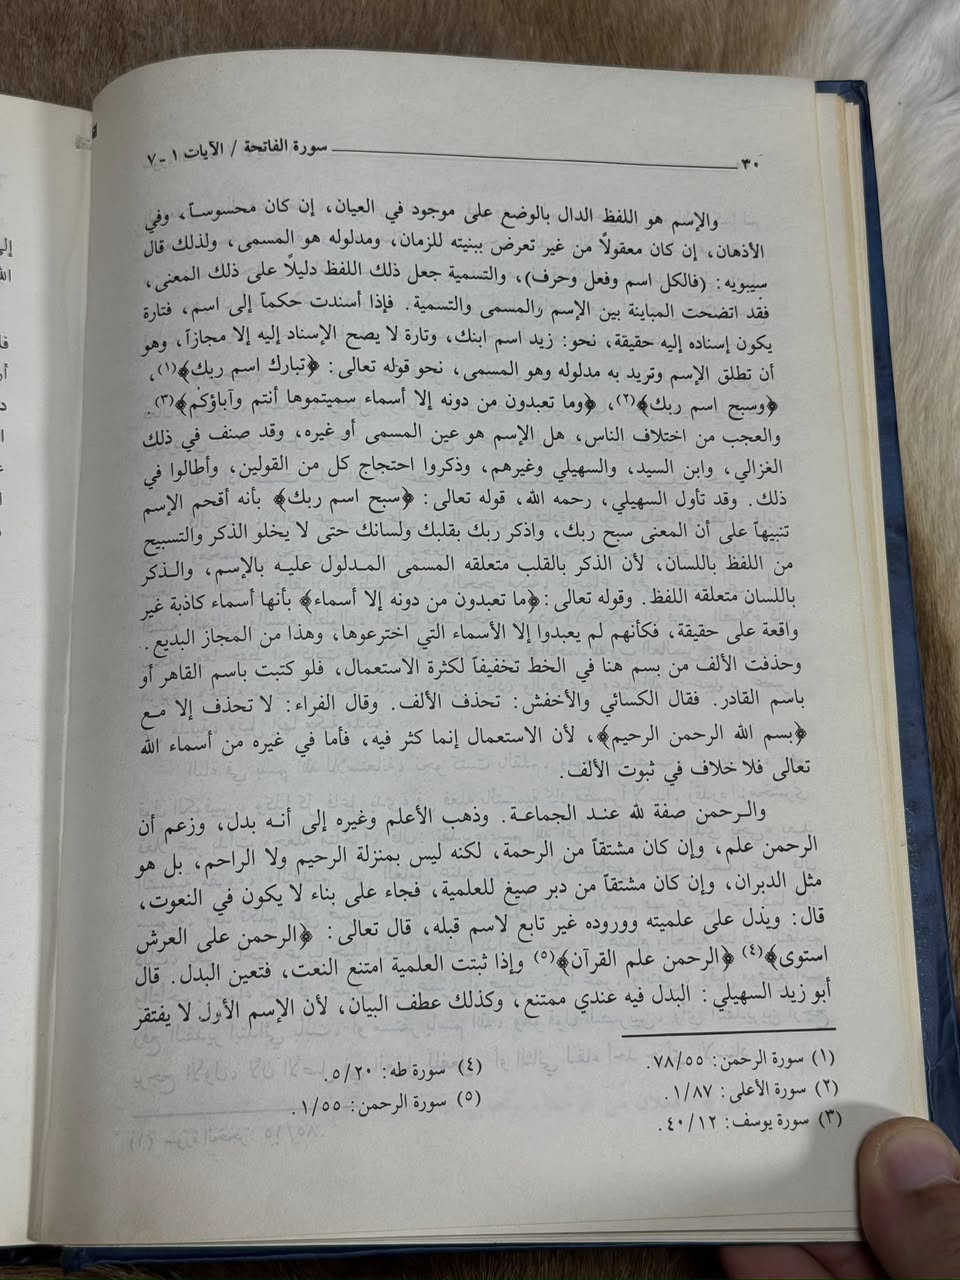 ٣٠ سورة الفاتحة / الآيات ١ - ٧
والإسم هو اللفظ الدال بالوضع على موجود في العيان، إن كان محسوسـاً، وفي
الأذهان، إن كان معقولاً من غير تعرض ببنيته للزمان، ومدلوله هو المسمى، ولذلك قال
سيبويه: (فالكل اسم وفعل وحرف)، والتسمية جعل ذلك اللفظ دليلاً على ذلك المعنى،
فقد اتضحت المباينة بين الإسم والمسمى والتسمية. فإذا أسندت حكماً إلى اسم، فتارة
يكون إسناده إليه حقيقة، نحو: زيد اسم ابنك، وتارة لا يصح الإسناد إليه إلا مجازاً، وهو
أن تطلق الإسم وتريد به مدلوله وهو المسمى، نحو قوله تعالى: ﴿تبارك اسم ربك﴾(١)،
﴿وسبح اسم ربك﴾(٢)، ﴿وما تعبدون من دونه إلا أسماء سميتموها أنتم وآباؤكم﴾(٣).
والعجب من اختلاف الناس، هل الإسم هو عين المسمى أو غيره، وقد صنف في ذلك
الغزالي، وابن السيد، والسهيلي وغيرهم، وذكروا احتجاج كل من القولين، وأطالوا في
ذلك. وقد تأول السهيلي، رحمه الله، قوله تعالى: ﴿سبح اسم ربك﴾ بأنه أقحم الإسم
تنبيهاً على أن المعنى سبح ربك، واذكر ربك بقلبك ولسانك حتى لا يخلو الذكر والتسبيح
من اللفظ باللسان، لأن الذكر بالقلب متعلقه المسمى المـدلول عليـه بالإسم، والـذكر
باللسان متعلقه اللفظ. وقوله تعالى: ﴿ما تعبدون من دونه إلا أسماء﴾ بأنها أسماء كاذبة غير
واقعة على حقيقة، فكأنهم لم يعبدوا إلا الأسماء التي اخترعوها، وهذا من المجاز البديع.
وحذفت الألف من بسم هنا في الخط تخفيفاً لكثرة الاستعمال، فلو كتبت باسم القاهر أو
باسم القادر. فقال الكسائي والأخفش: تحذف الألف. وقال الفراء: لا تحذف إلا مـع
﴿بسم الله الرحمن الرحيم﴾، لأن الاستعمال إنما كثر فيه، فأما في غيره من أسماء الله
تعالى فلا خلاف في ثبوت الألف.
والـرحمن صفة لله عنـد الجماعـة. وذهب الأعلم وغيره إلى أنـه بدل، وزعم أن
الرحمن علم، وإن كان مشتقاً من الرحمة، لكنه ليس بمنزلة الرحيم ولا الراحم، بل هو
مثل الدبران، وإن كان مشتقاً من دبر صيغ للعلمية، فجاء على بناء لا يكون في النعوت،
قال: ويذل على علميته ووروده غير تابع لاسم قبله، قال تعالى: ﴿الرحمن على العرش
استوى﴾(٤) ﴿الرحمن علم القرآن﴾(٥) وإذا ثبتت العلمية امتنع النعت، فتعين البدل. قال
أبو زيد السهيلي: البدل فيه عندي ممتنع، وكذلك عطف البيان، لأن الإسم الأول لا يفتقر
(١) سورة الرحمن: ٧٨/٥٥.
(٢) سورة الأعلى: ١/٨٧.
(٣) سورة يوسف: ٤٠/١٢.
(٤) سورة طه: ٥/٢٠.
(٥) سورة الرحمن: ١/٥٥.